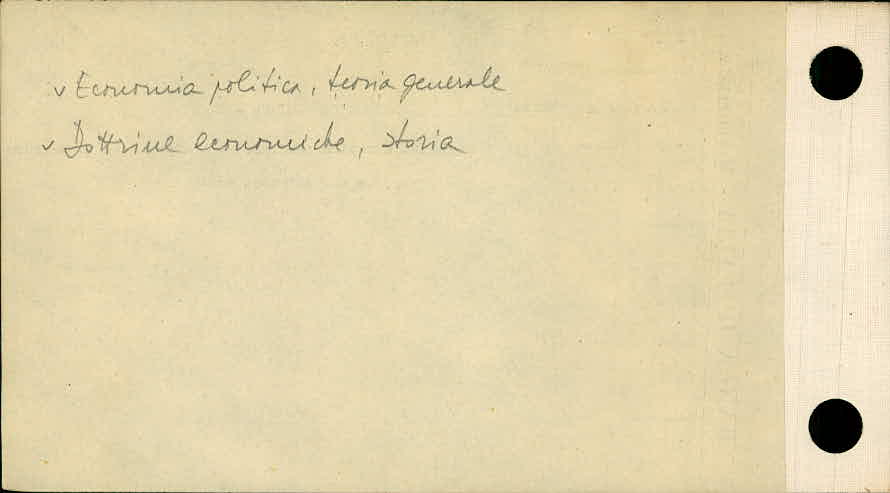 v Economia politica, teoria generale
v Dottrine economiche, storia